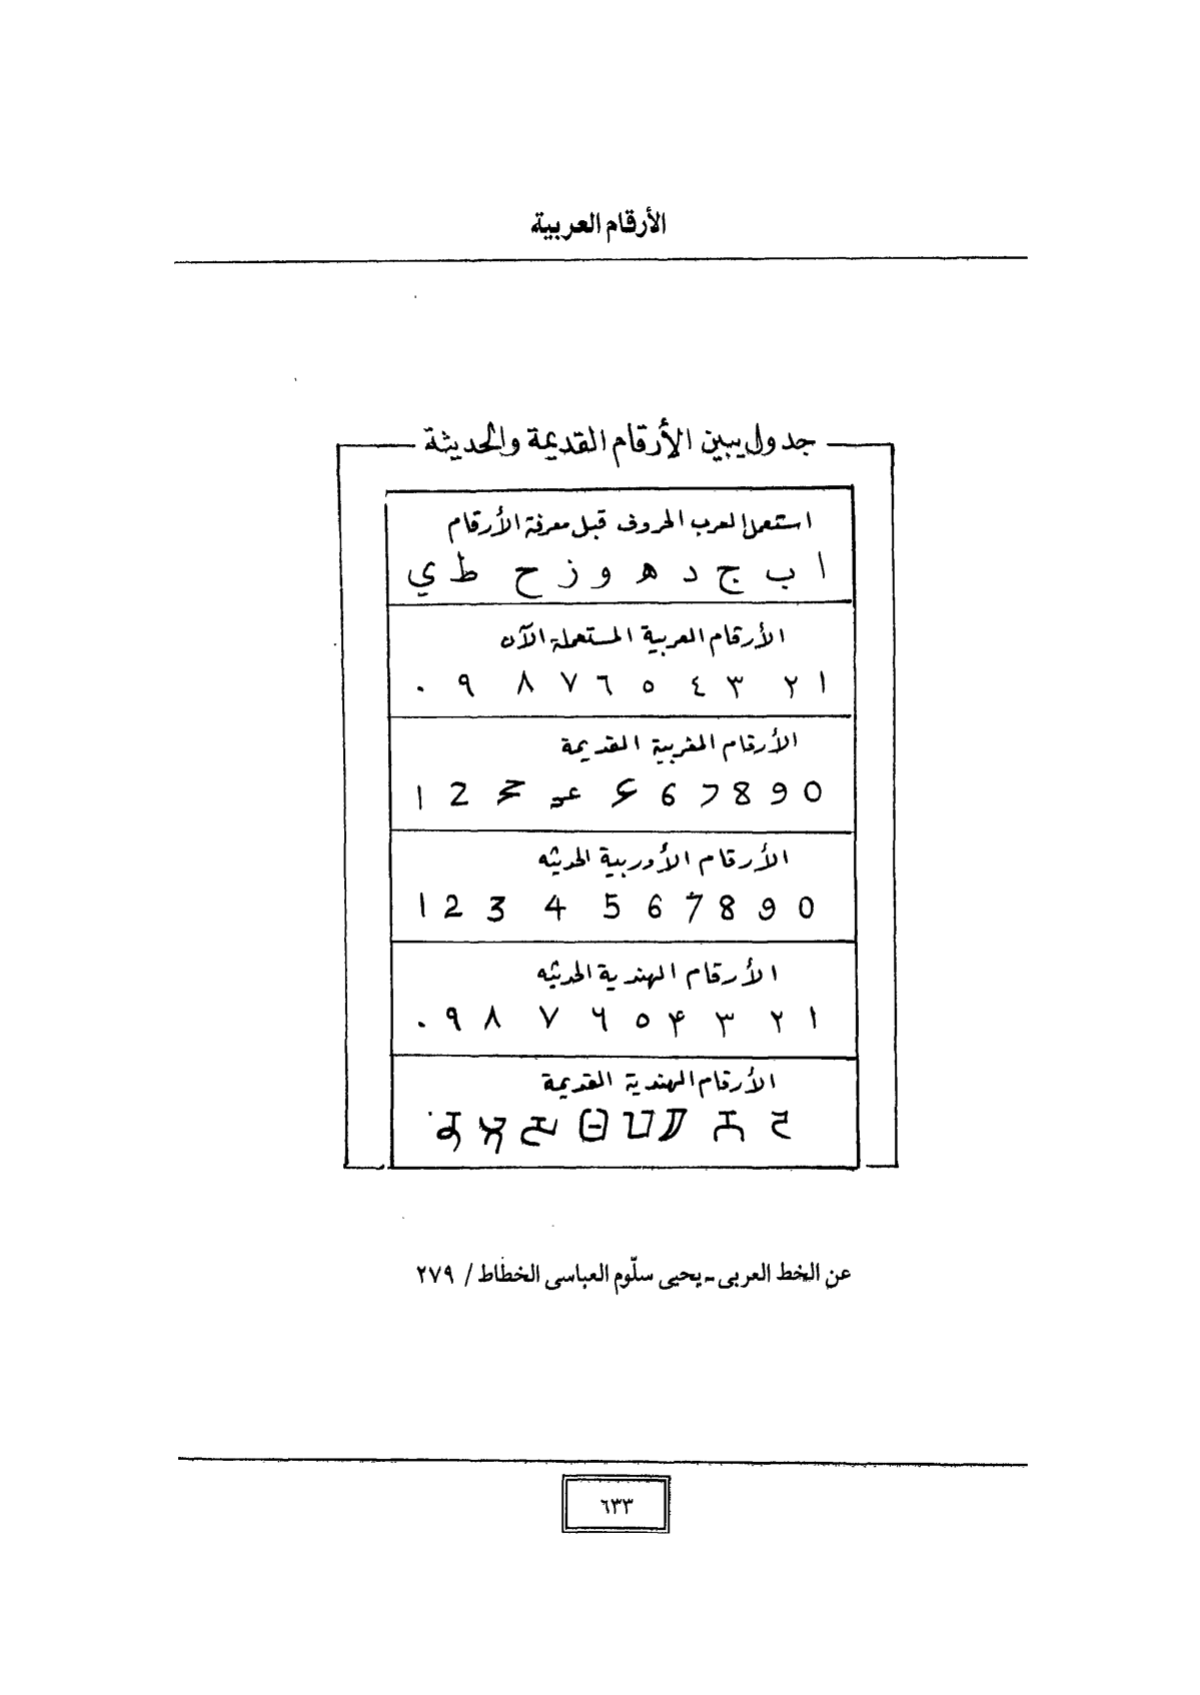 الأرقام العربية
جدول يبين الأرقام القديمة والحديثة
استعمل العرب الحروف قبل معرفة الأرقام
ا ب ج د ه و ز ح ط ي
الأرقام العربية المستعملة الآن
١ ٢ ٣ ٤ ٥ ٦ ٧ ٨ ٩ ٠
الأرقام المغربية القديمة
1 2 6 7 8 9 0
الأرقام الأوربية الحديثه
1 2 3 4 5 6 7 8 9 0
الأرقام الهندية الحديثه
۱ ۲ ۳ ۴ ۵ ۶ ۷ ۸ ۹ ۰
الأرقام الهندية القديمة
عن الخط العربى - يحيى سلّوم العباسى الخطاط / ٢٧٩
٦٣٣